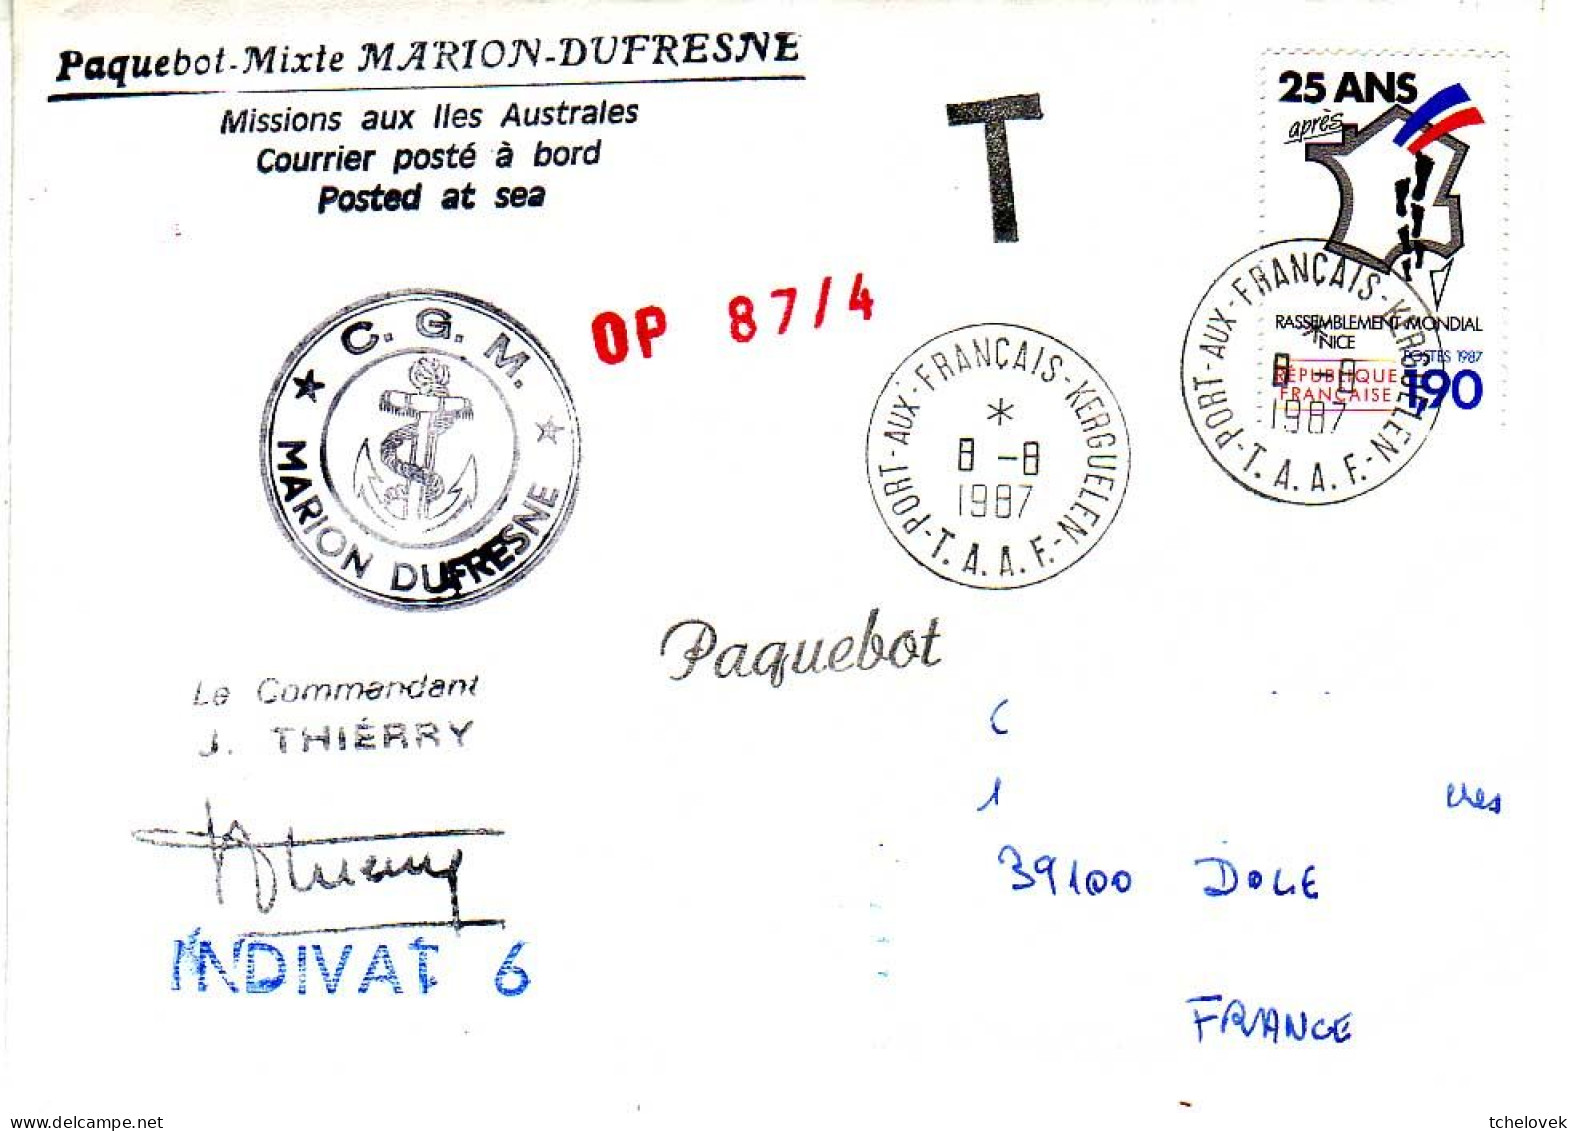 Paquebot-Mixte MARION-DUFRESNE
Missions aux Iles Australes
Courrier posté à bord
Posted at sea
T
25 ANS
après
RASSEMBLEMENT MONDIAL
NICE
POSTES 1987
RÉPUBLIQUE
FRANÇAISE
1,90
PORT-AUX-FRANÇAIS-KERGUELEN-T.A.A.F.
*
8 -8
1987
OP 87/4
C. G. M.
MARION DUFRESNE
PORT-AUX-FRANÇAIS-KERGUELEN-T.A.A.F.
*
8 -8
1987
Paquebot
Le Commandant
J. THIÉRRY
INDIVAT 6
C
1
39100 DOLE
FRANCE
tchelovek